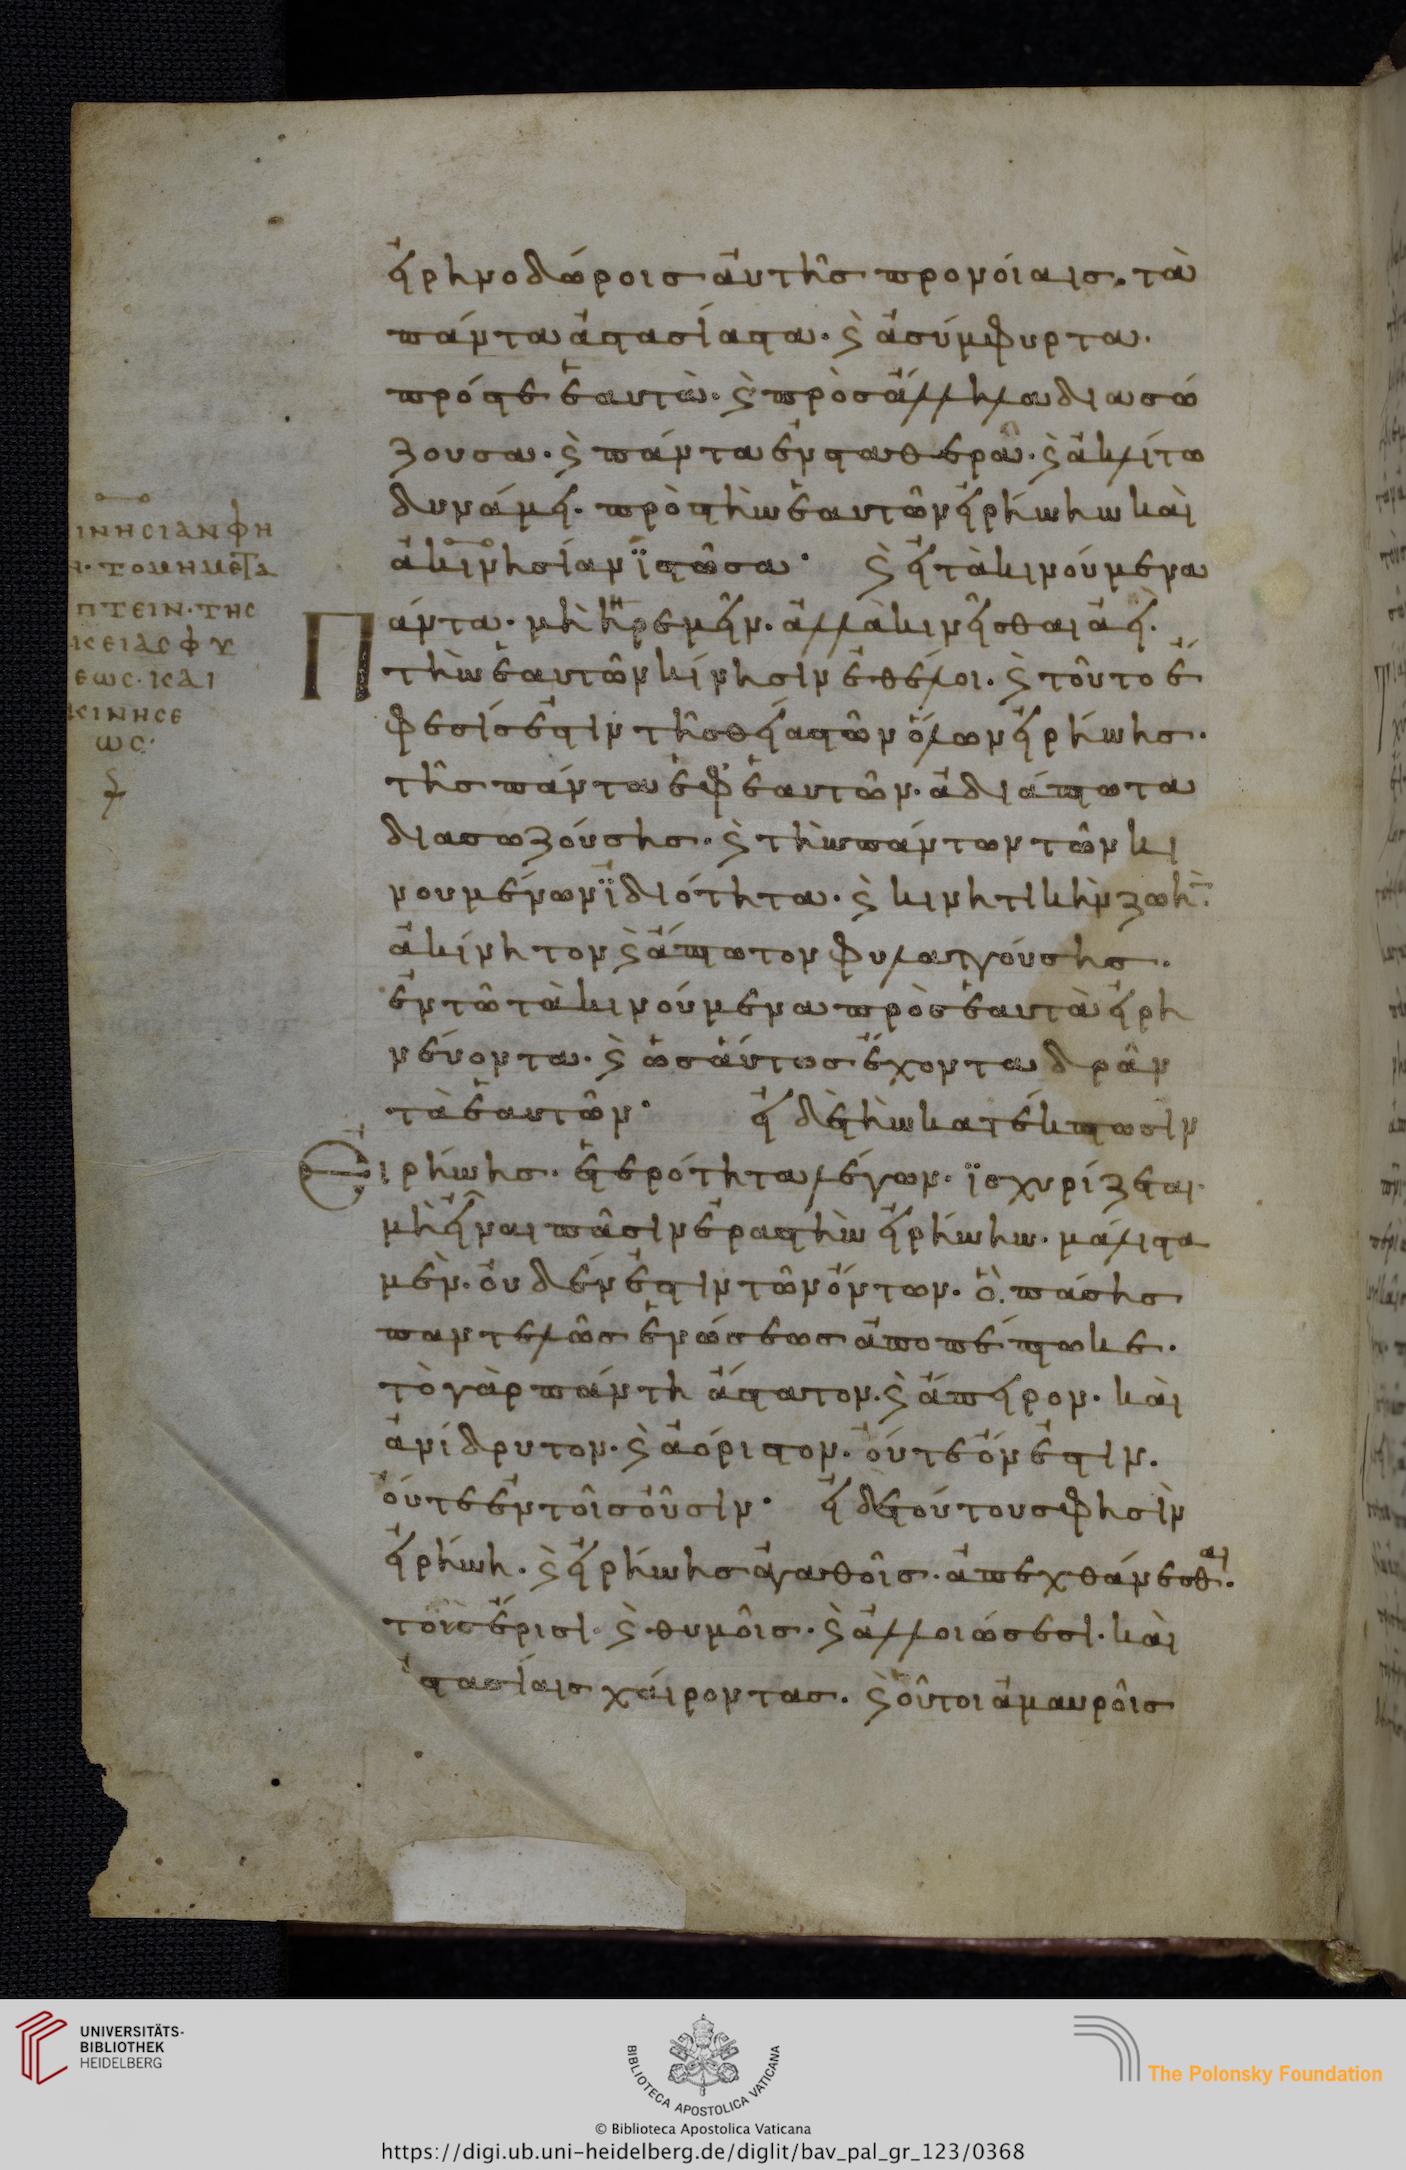 εἰρηνοδώροις αὐτῆς προνοίαις. τὰ
πάντα ἀστασίαστα· ϗ ἀσύμφυρτα.
πρός τε ἑαυτὰ· ϗ πρὸς ἄλληλα διασώ
ζουσα· ϗ πάντα ἐν σταθερᾶ· ϗ ἀκλίτω
δυνάμει. πρὸς τὴν ἑαυτῶν εἰρήνην καὶ
ἀκινησίαν ϊστῶσα· ϗ εἰ τὰ κινούμενα
Πάντα. μὴ ἠρεμεῖν. ἀλλὰ κινεῖσθαι ἀεὶ.
τὴν ἑαυτῶν κίνησιν ἐθέλοι. ϗ τοῦτο ἔ
φεσίς ἐστιν τῆς θείας τῶν ὅλων εἰρήνης.
τῆς πάντα ἐφ' ἑαυτῶν. ἀδιάπτωτα
διασωζούσης. ϗ τὴν πάντων τῶν κι
νουμένων ϊδιότητα. ϗ κινητικὴν ζωὴν.
ἀκίνητον ϗ ἄπτωτον φυλαττούσης.
ἐν τῶ τὰ κινούμενα πρὸς ἑαυτὰ εἰρη
νεύοντα. ϗ ὡσαύτως ἔχοντα δρᾶν
τὰ ἑαυτῶν· εἰ δὲ τὴν κατέκπτωσιν
Εἰρήνης. ἑτερότητα λέγων. ϊσχυρίζεται.
μὴ εἶναι πᾶσιν ἐραστὴν εἰρήνην. μάλιστα
μὲν. οὐδέν ἐστιν τῶν ὄντων. ὃ πάσης
παντελῶς ἑνώσεως ἀποπέπτωκε.
τὸ γὰρ πάντη ἄστατον. ϗ ἄπειρον. καὶ
ἀνίδρυτον. ϗ ἀόριστον. οὔτε ὄν ἐστιν.
οὔτε ἐν τοῖς οὖσιν· εἰ δὲ τούτους φησὶν
εἰρήνη. ϗ εἰρήνης ἀγαθοῖς. ἀπεχθάνεσθαι.
τοῖς ἔρισι. ϗ θυμοῖς. ϗ ἀλλοιώσεσι. καὶ
ἀστασίαις χαίροντας. ϗ οὗτοι ἀμαυροῖς
ΙΝΗCΙΑΝ ΦΗ
Ν· ΤΟ ΜΗ ΜΕΤΑ
ΠΤΕΙΝ· ΤΗC
ΚΕΙΑC ΦΥ
ΕωC· ΚΑΙ
ΚΙΝΗCΕ
ωC·
UNIVERSITÄTS-
BIBLIOTHEK
HEIDELBERG
BIBLIOTECA APOSTOLICA VATICANA
The Polonsky Foundation
© Biblioteca Apostolica Vaticana
https://digi.ub.uni-heidelberg.de/diglit/bav_pal_gr_123/0368